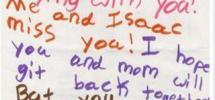 with you!
Me and Isaac
miss you! I hope
you and mom will
git back together
But you